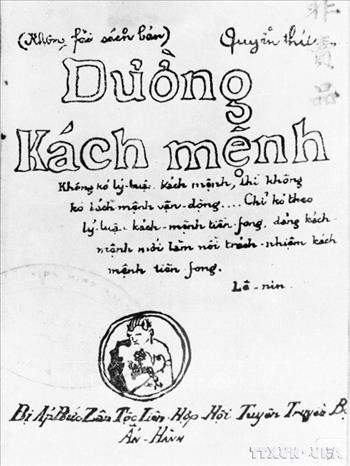 (Không fải sách bán) Quyển thứ
非賣品
Dường
Kách mệnh
Không kó lý-luận kách mệnh, thì không
kó kách mệnh vận-động.... Chỉ kó theo
lý-luận kách-mệnh tiền-fong, đảng kách
mệnh mới làm nổi trách-nhiệm kách
mệnh tiền fong.
Lê-nin.
Bị Áp Bức Zân Tộc Liên-Hợp-Hội Tuyên Truyền Bộ
Ấn-Hành
TTXVN - VNA